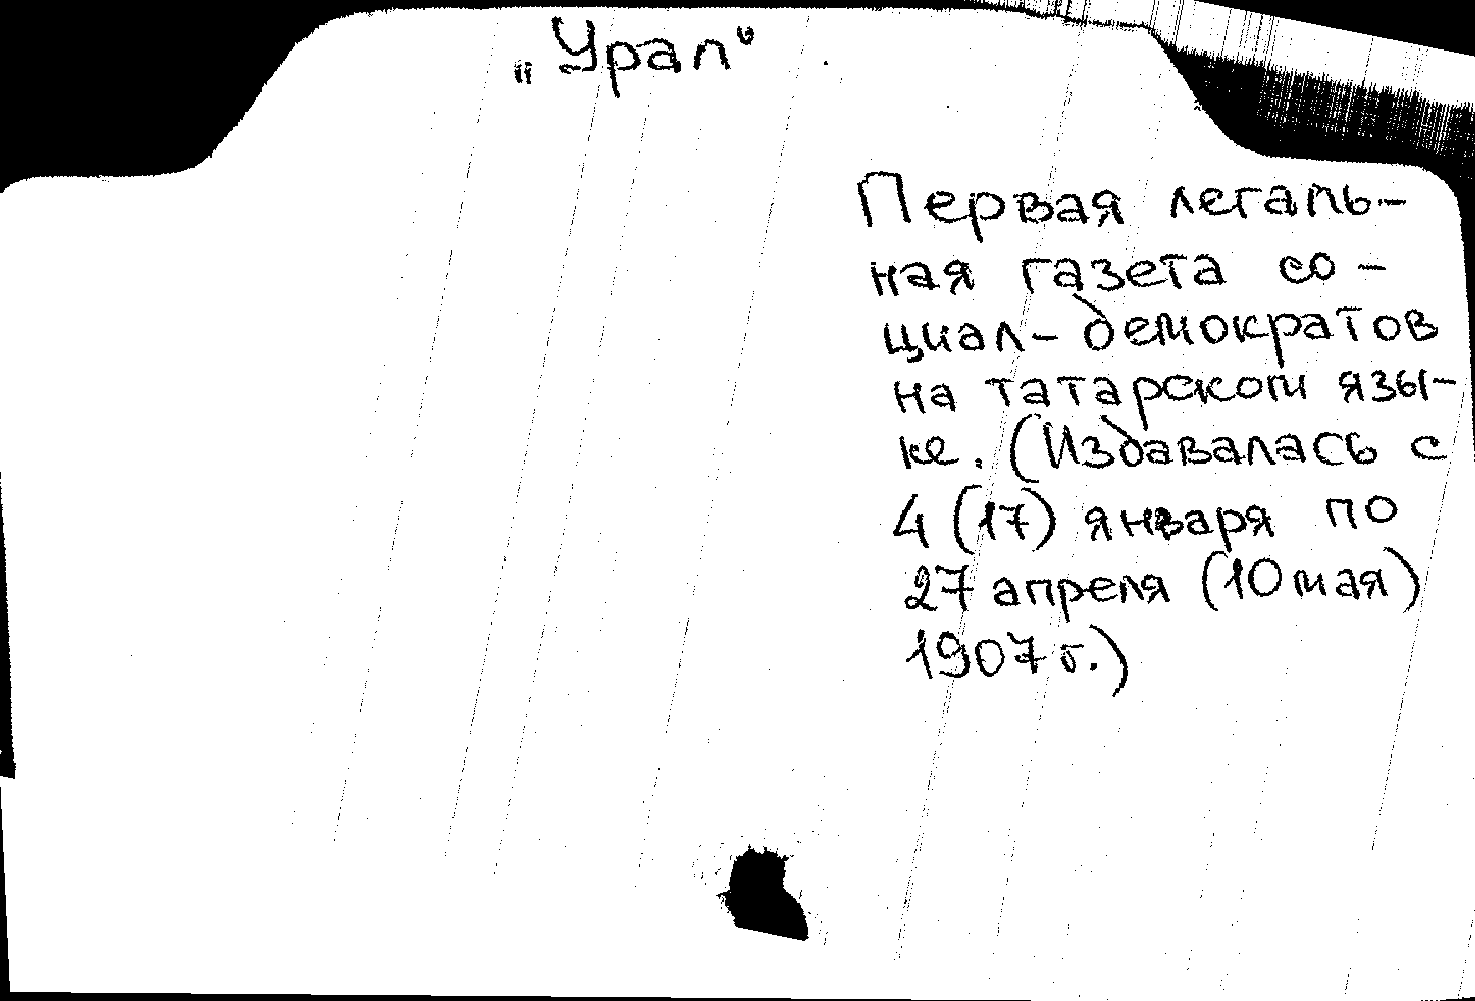 „Урал“
Первая легаль-
ная газета со-
циал-демократов
на татарском язы-
ке. (Издавалась с
4 (17) января по
27 апреля (10 мая)
1907 г.)